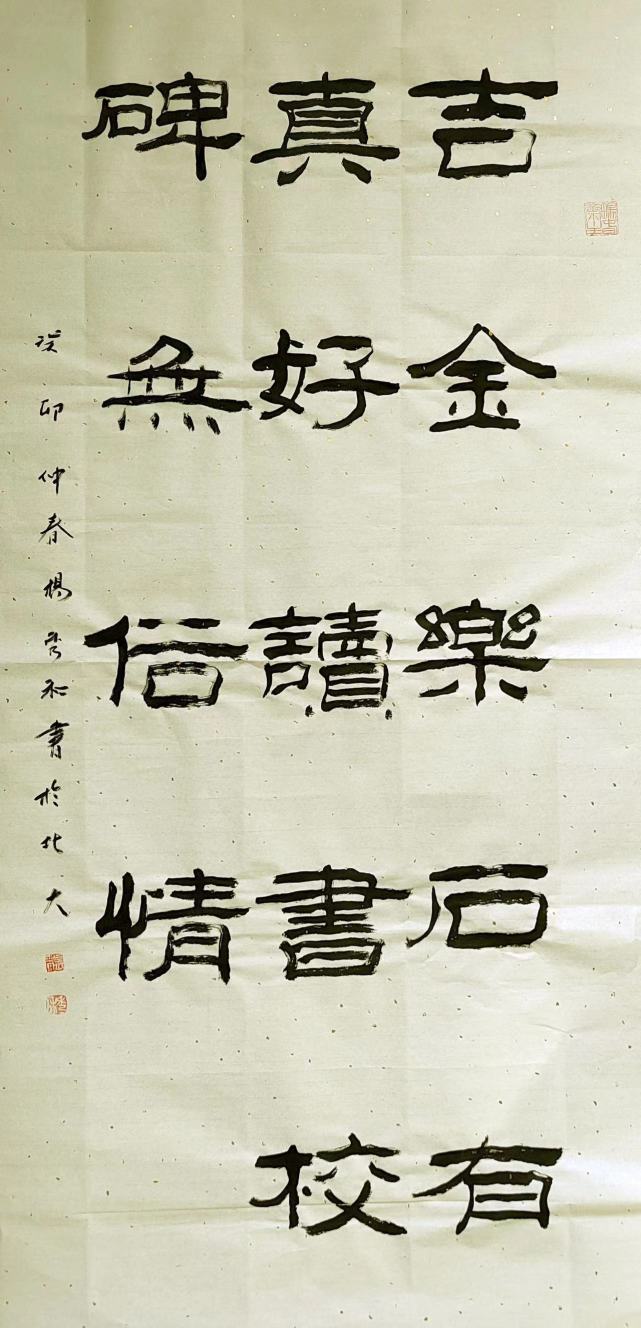 吉金樂石有
真好讀書校
碑無俗情
癸卯仲春楊和書於北大